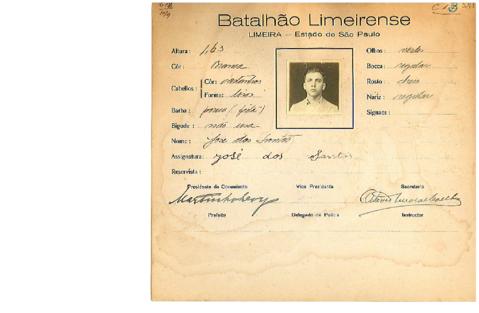 Batalhão Limeirense
LIMEIRA — Estado de São Paulo
Altura: 1,63
Côr: Branca
Cabellos: Côr: castanhos
Fórma: lisos
Barba: pouca (feita)
Bigode: não usa
Nome: José dos Santos
Assignatura: José dos Santos
Reservista:
Olhos:
Bocca: regular
Rosto:
Nariz: regular
Signaes:
Presidente da Commissão Vice Presidente Secretario
Prefeito Delegado de Policia Instructor